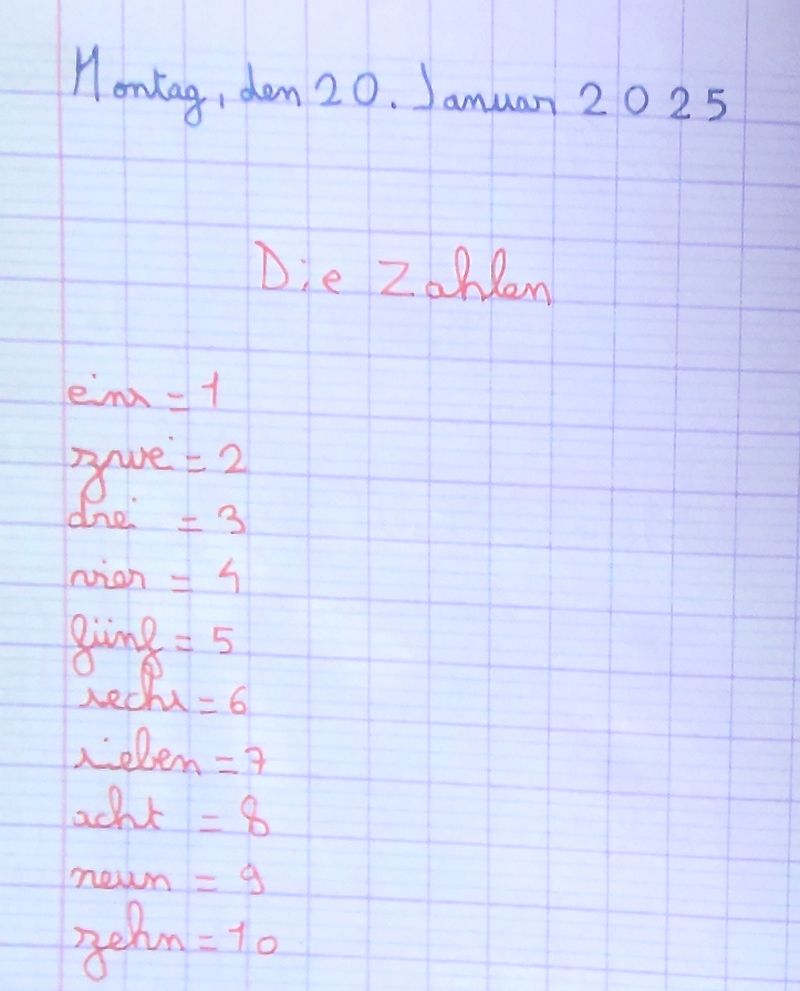 Montag, den 20. Januar 2025
Die Zahlen
eins = 1
zwei = 2
drei = 3
vier = 4
fünf = 5
sechs = 6
sieben = 7
acht = 8
neun = 9
zehn = 10